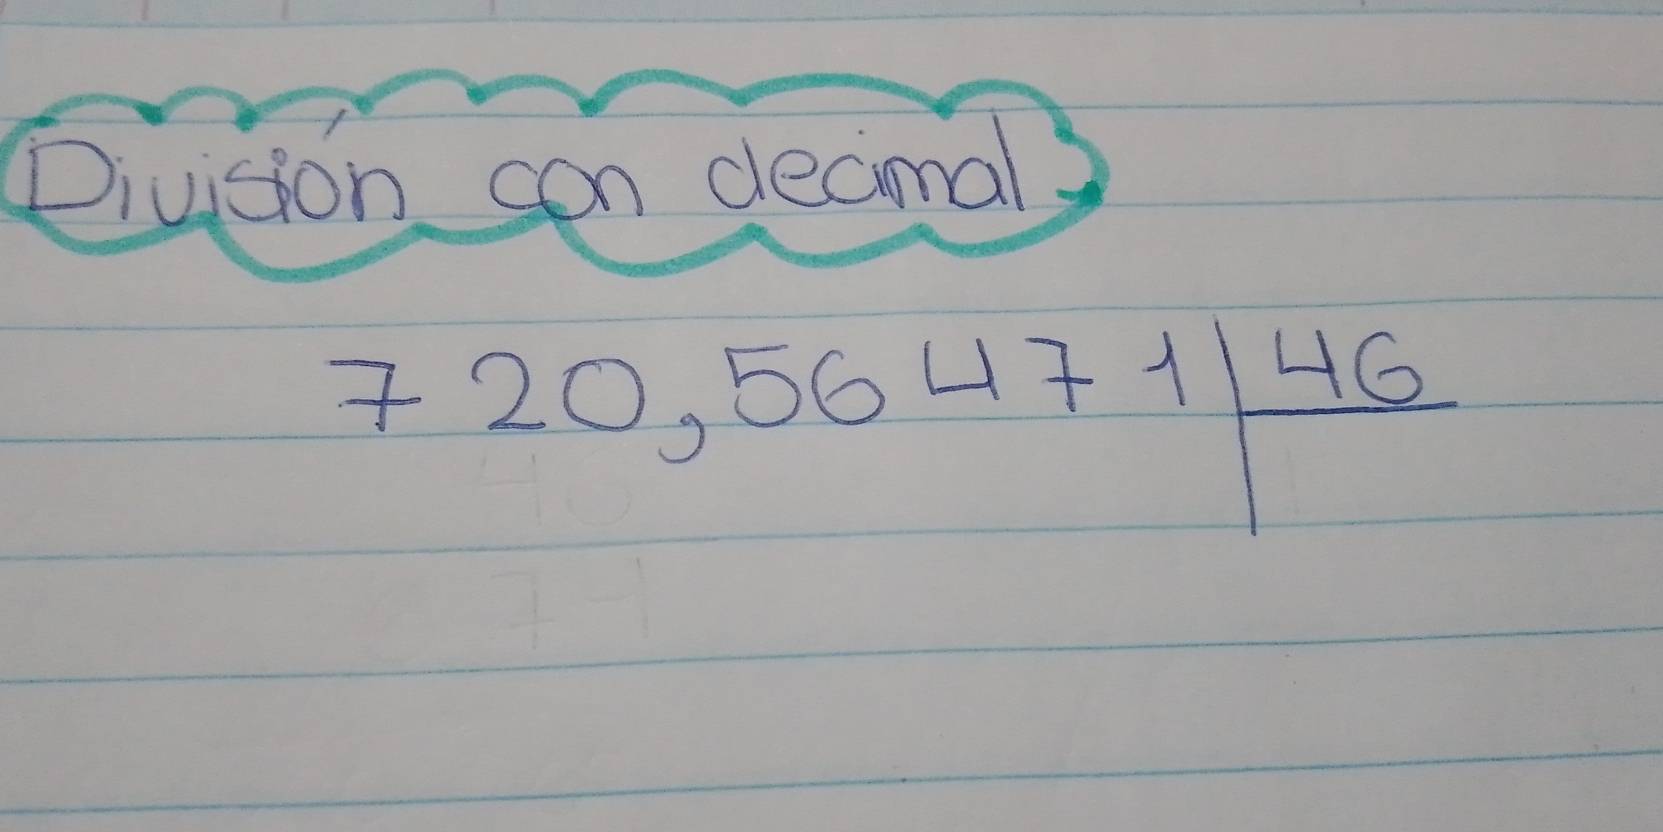 División con decimal
720,56471 46